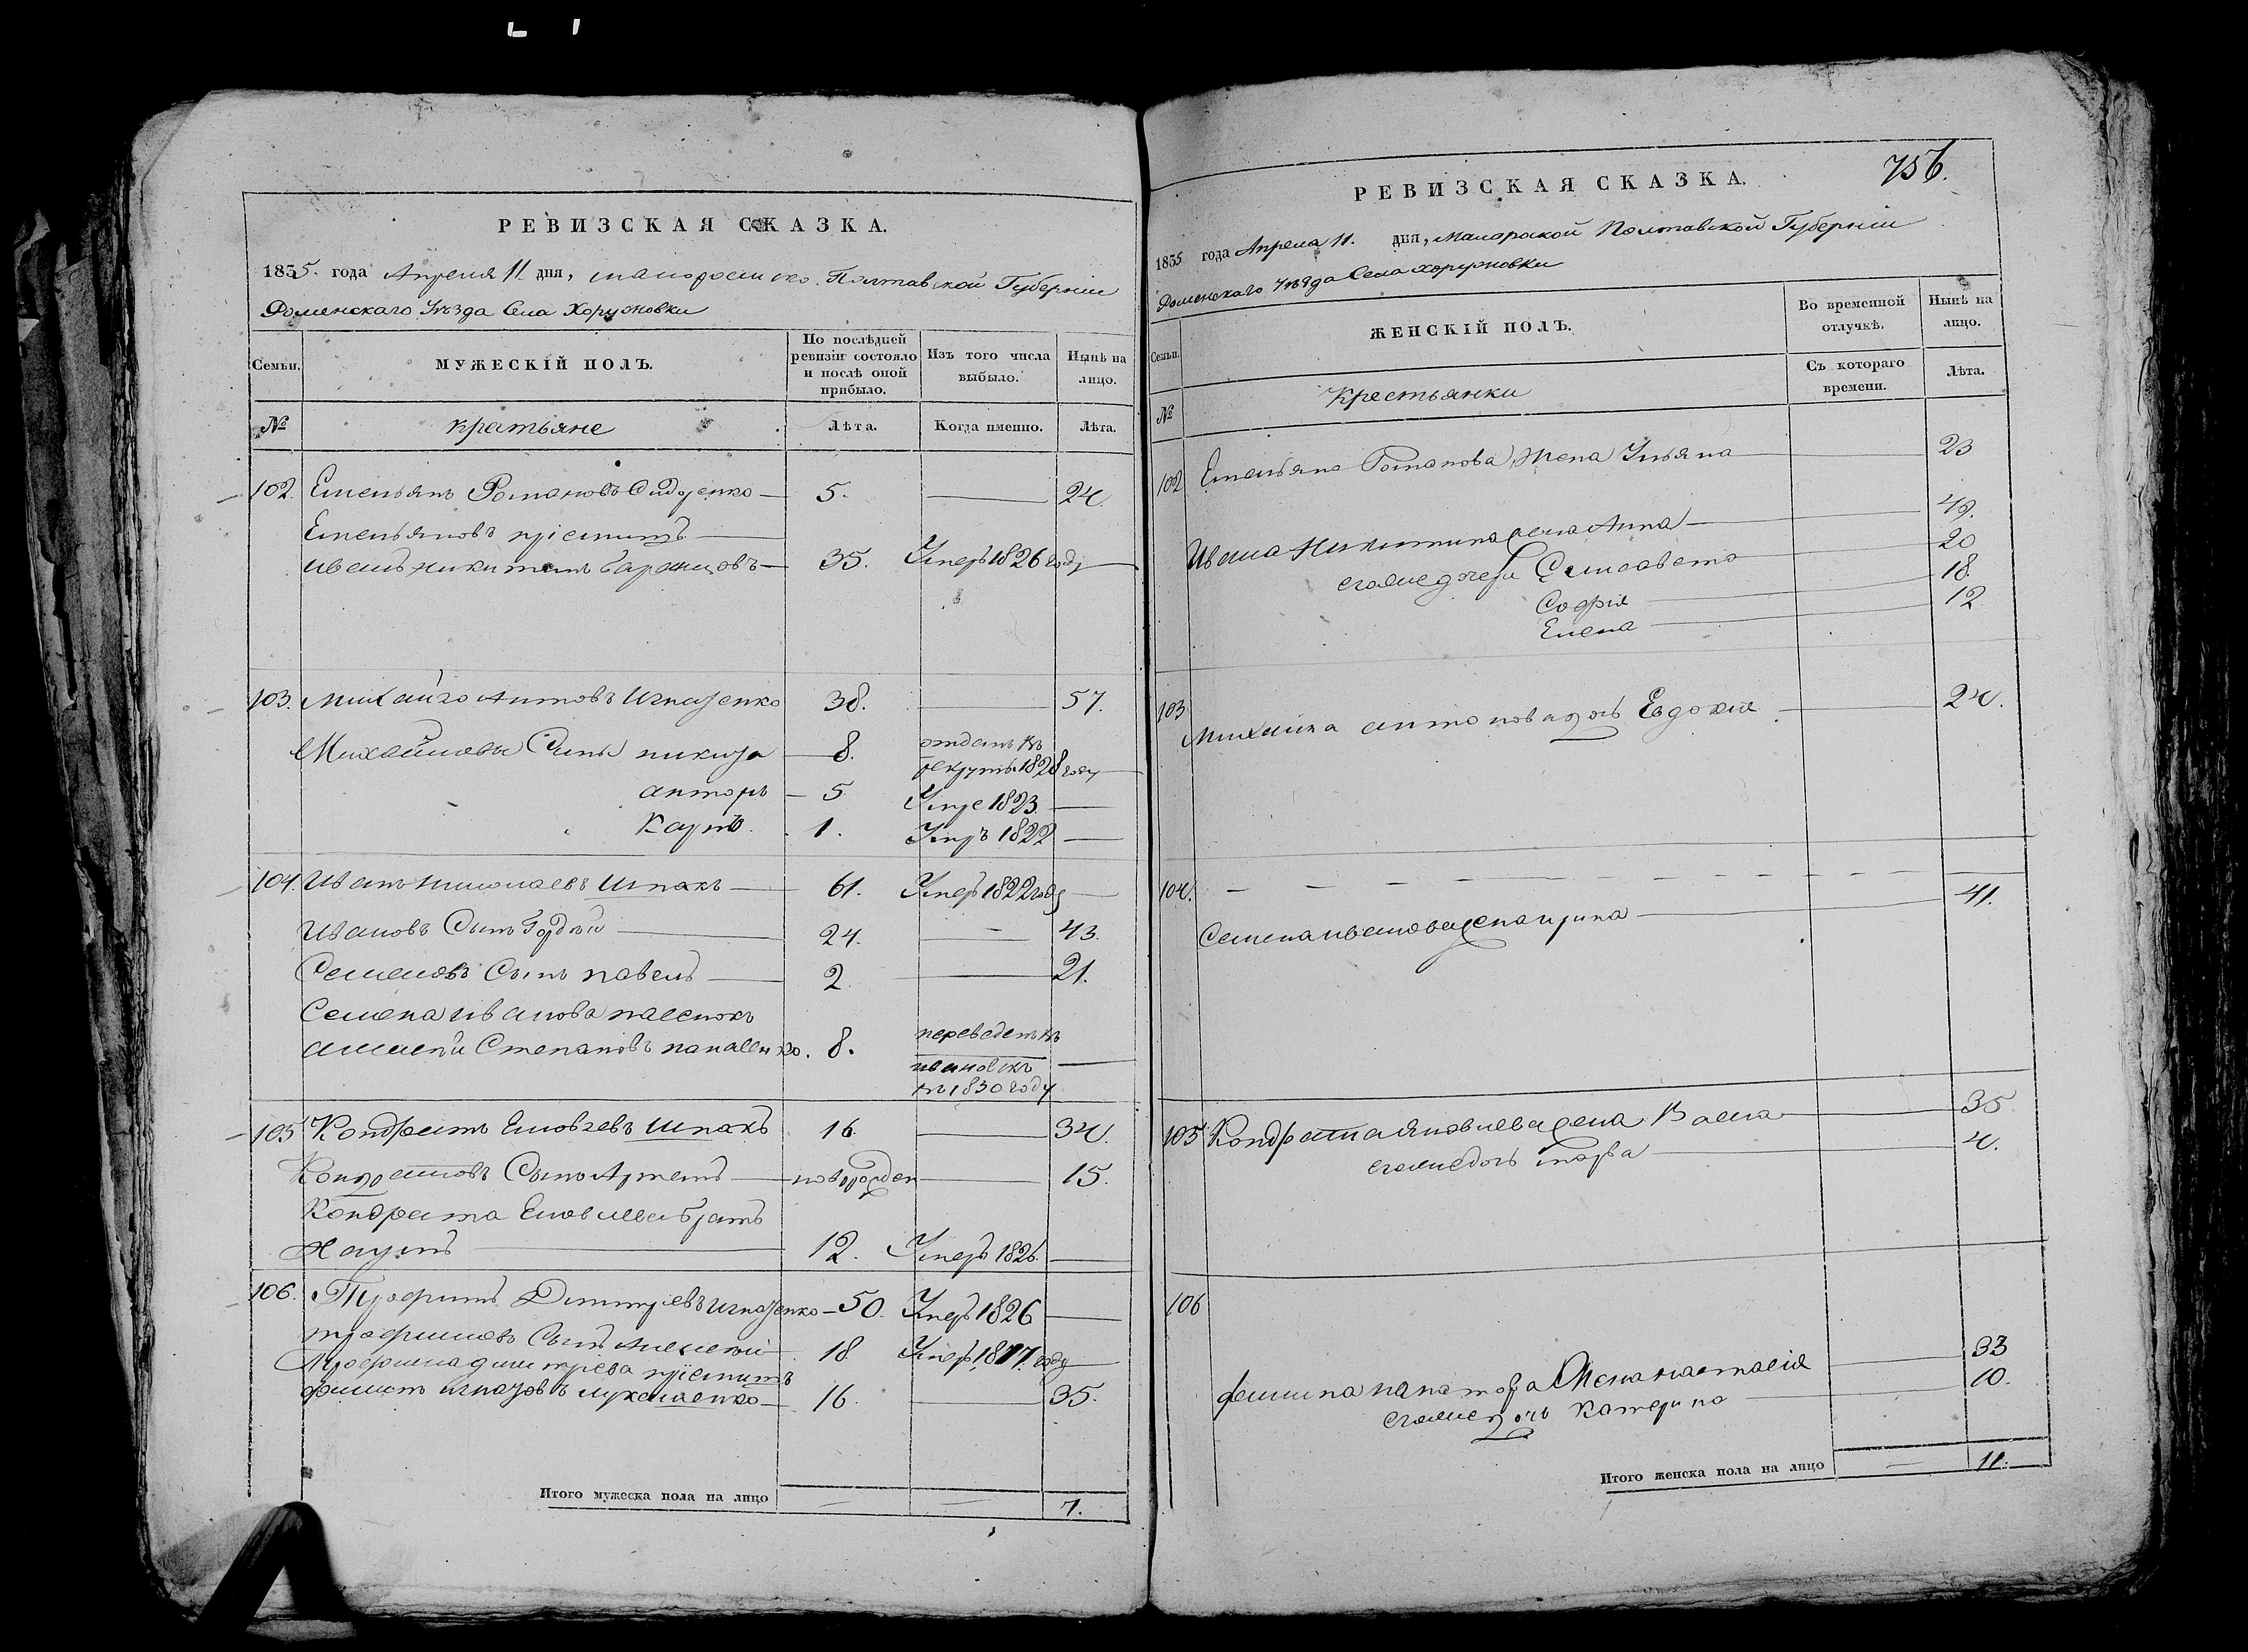 РЕВИЗСКАЯ СКАЗКА.
1835. года Апреля 11 дня, Полтавской Губернiи
Роменскаго Уѣзда Села Хоружовки
Семьи.
МУЖЕСКІЙ ПОЛЪ.
По послѣдней ревизіи состояло и послѣ оной прибыло.
Изъ того числа выбыло.
Нынѣ на лицо.
№
кратьяне
Лѣта.
Когда именно.
Лѣта.
102. Емельянъ Романовъ Сидоренко 5. 24.
Емельяновъ пріемишъ
Иванъ Никитинъ 35. Умеръ 1826 году
103. Михайло Антоновъ Игнатенко 38. 57.
Михайловы Сыны Никита 8. отданъ въ
рекруты 1828 году
антонъ 5 Умре 1823
Карпъ. 1. Умръ 1822
104. Иванъ Николаевъ Шпакъ 61. Умеръ 1822 году
Ивановъ Сынъ Гордѣй 24. 43.
Семеновъ Сынъ павелъ 2. 21.
Семена иванова пасенокъ
алексѣй Степановъ 8. переведенъ въ
ивановск
въ 1830 году
105 Кондратъ Яковлевъ Шпакъ 16. 34.
Кондратовъ Сынъ Артемъ новорожден 15.
Кондрата Яковлева братъ
Наумъ 12. Умеръ 1826.
106. Трофимъ Дмитріевъ Игнатенко 50. Умеръ 1826
трофимовъ Сынъ Алексѣй 18 Умеръ 1817 году
Трофима дмитріева пріемишъ
филипъ игнатовъ 16. 35.
Итого мужеска пола на лицо 7.
756.
РЕВИЗСКАЯ СКАЗКА.
1835 года Апреля 11. дня, Полтавской Губерніи
Роменскаго Уѣзда Села Хоружовки
Семьи.
ЖЕНСКІЙ ПОЛЪ.
Во временной отлучкѣ.
Нынѣ на лицо.
№
Крестьянки
Съ котораго времени.
Лѣта.
102 Емельяна Романова Жена Ульяна 23
Ивана Никитина жена Анна 49.
еголиедочери Елисавета 20
Софія 18.
Елена 12
103 Михайла антонова дочь Евдокія 24.
104.
Семена иванова жена ирина 41.
105 Кондрата Яковлева жена Васса 35
еголиедочь 4.
106
филипа Жена настасія 33
еголиедочь Катерина 10.
Итого женска пола на лицо 11.